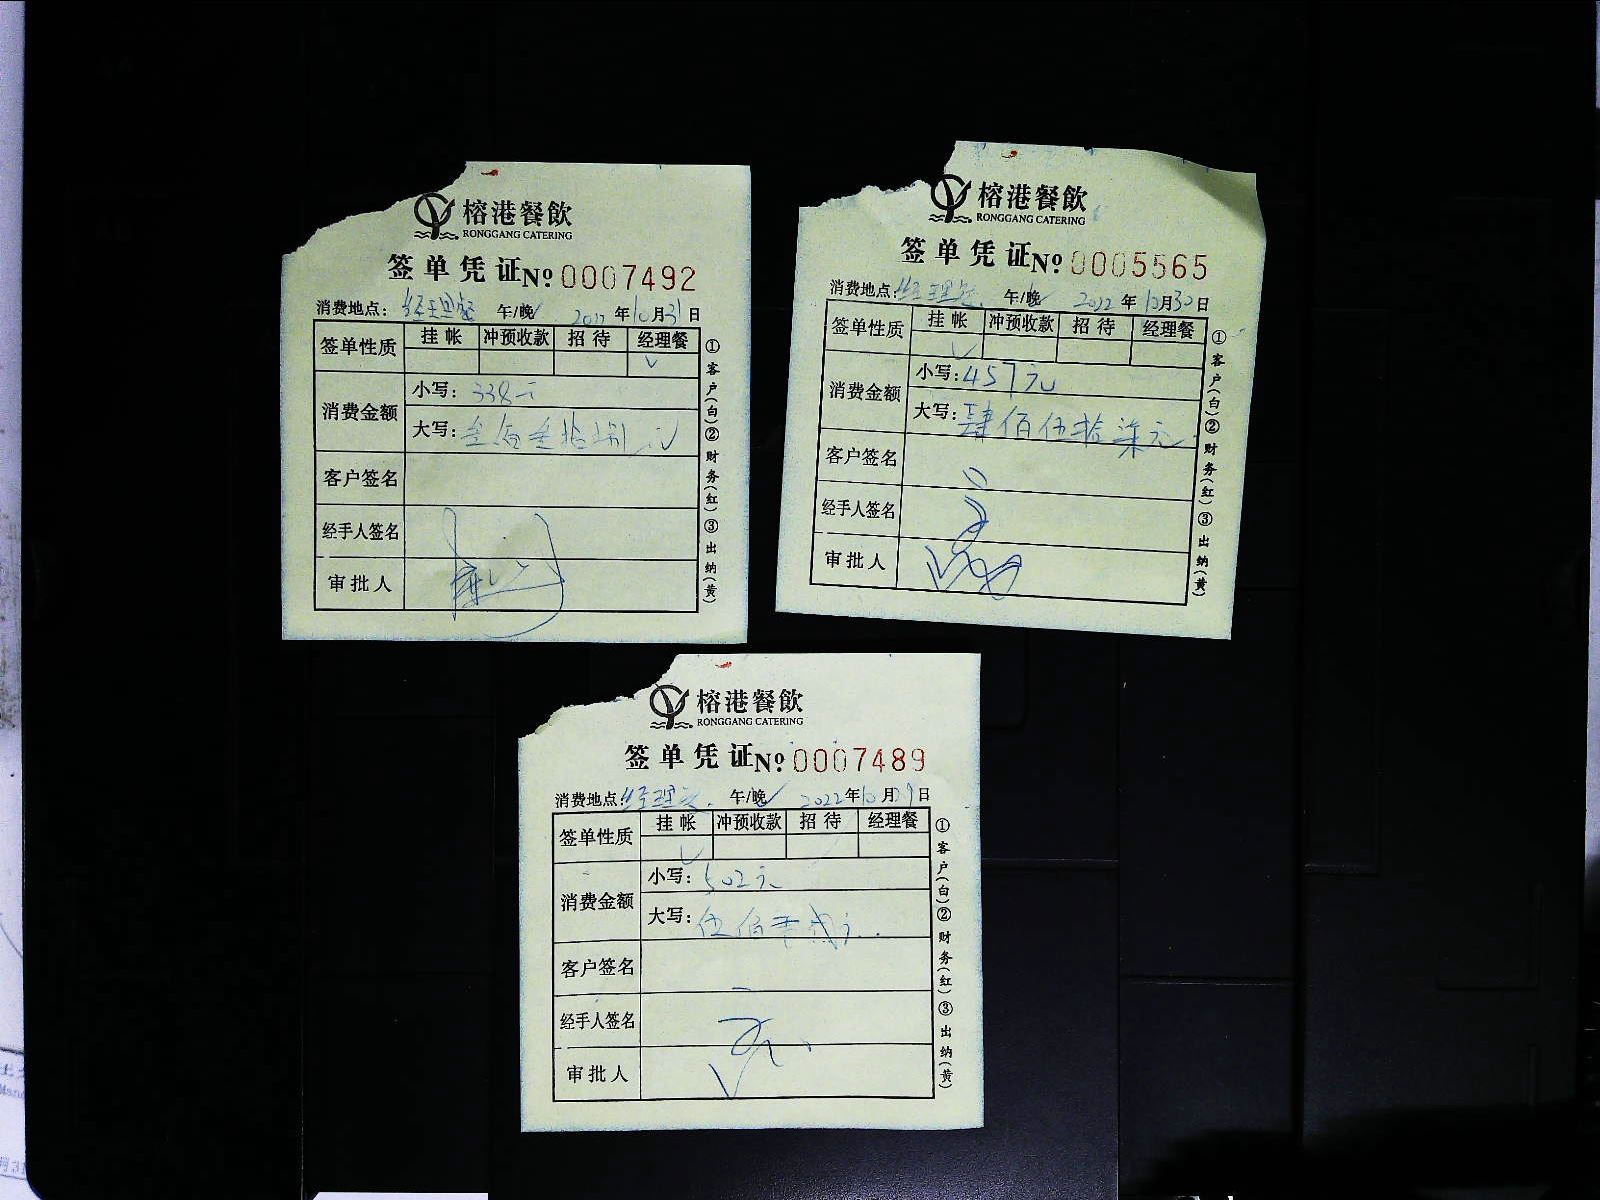 榕港餐飲
RONGGANG CATERING
签单凭证 № 0007492
消费地点: 经理餐 午/晚 2022年10月31日
签单性质 挂帐 冲预收款 招待 经理餐
✓
消费金额 小写: 338元
大写: 叁佰叁拾捌元
客户签名
经手人签名
审批人
①客户(白)②财务(红)③出纳(黄)
榕港餐飲
RONGGANG CATERING
签单凭证 № 0005565
消费地点: 经理 午/晚 2022年10月30日
签单性质 挂帐 冲预收款 招待 经理餐
✓
消费金额 小写: 457元
大写: 肆佰伍拾柒元
客户签名
经手人签名
审批人
①客户(白)②财务(红)③出纳(黄)
榕港餐飲
RONGGANG CATERING
签单凭证 № 0007489
消费地点: 经理 午/晚 2022年10月 日
签单性质 挂帐 冲预收款 招待 经理餐
✓
消费金额 小写: 502元
大写: 伍佰零贰元
客户签名
经手人签名
审批人
①客户(白)②财务(红)③出纳(黄)